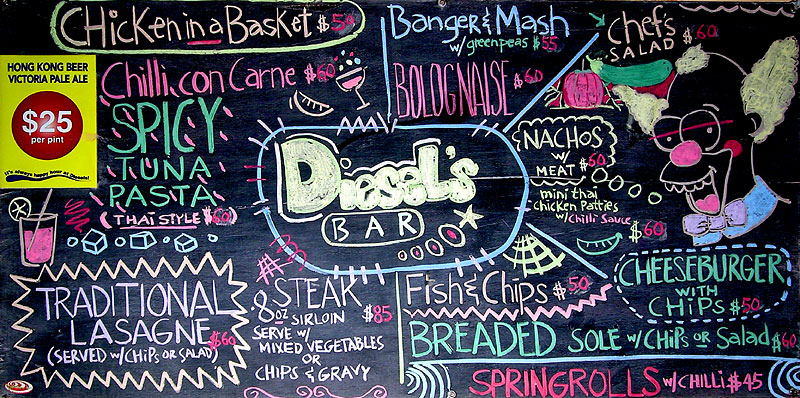 CHicken in a Basket $50
HONG KONG BEER
VICTORIA PALE ALE
$25
per pint
It's always happy hour at Diesels!
Chilli con Carne $60
SPICY
TUNA
PASTA
(THAI STYLE $60)
Banger & Mash
w/ greenpeas $55
BOLOGNAISE $60
CHef's
SALAD $60
Diesel's
BAR
NACHOS
w/
MEAT $60
mini thai
chicken Patties
w/ Chilli Sauce
$60
TRADITIONAL
LASAGNE
(SERVED w/ CHIPS OR SALAD) $60
STEAK
8oz SIRLOIN $85
SERVE w/
MIXED VEGETABLES
OR
CHIPS & GRAVY
Fish & Chips $50
CHEESEBURGER
WITH
CHIPS $50
BREADED SOLE w/ CHiPs OR Salad $60
SPRINGROLLS w/ CHILLI $45